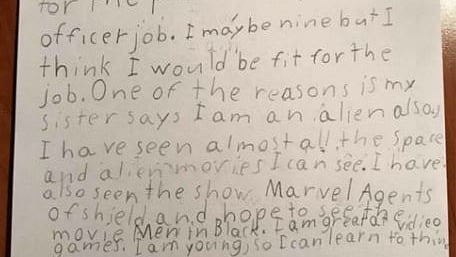 for the
officer job. I may be nine but I
think I would be fit for the
job. One of the reasons is my
sister says I am an alien also,
I have seen almost all the space
and alien movies I can see. I have
also seen the show Marvel Agents
of shield and hope to see the
movie Men in Black. I am great at vidieo
games. I am young, so I can learn to thin